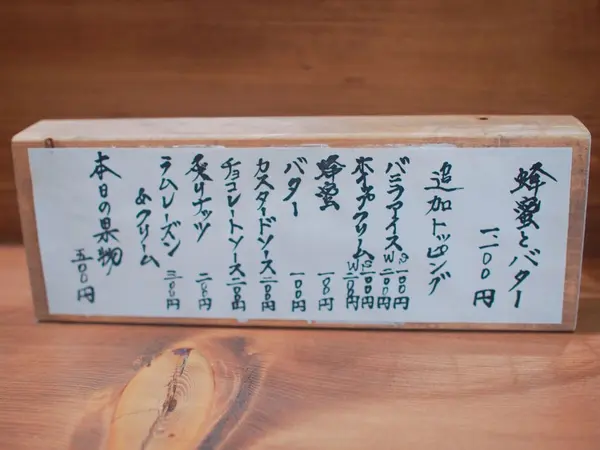 蜂蜜とバター
一一〇〇円
追加トッピング
バニラアイス S 一〇〇円
W 二〇〇円
ホイップクリーム S 一〇〇円
W 二〇〇円
蜂蜜 一〇〇円
バター 一〇〇円
カスタードソース 二〇〇円
チョコレートソース 二〇〇円
炙りナッツ 二〇〇円
ラムレーズン
&クリーム 三〇〇円
本日の果物
五〇〇円